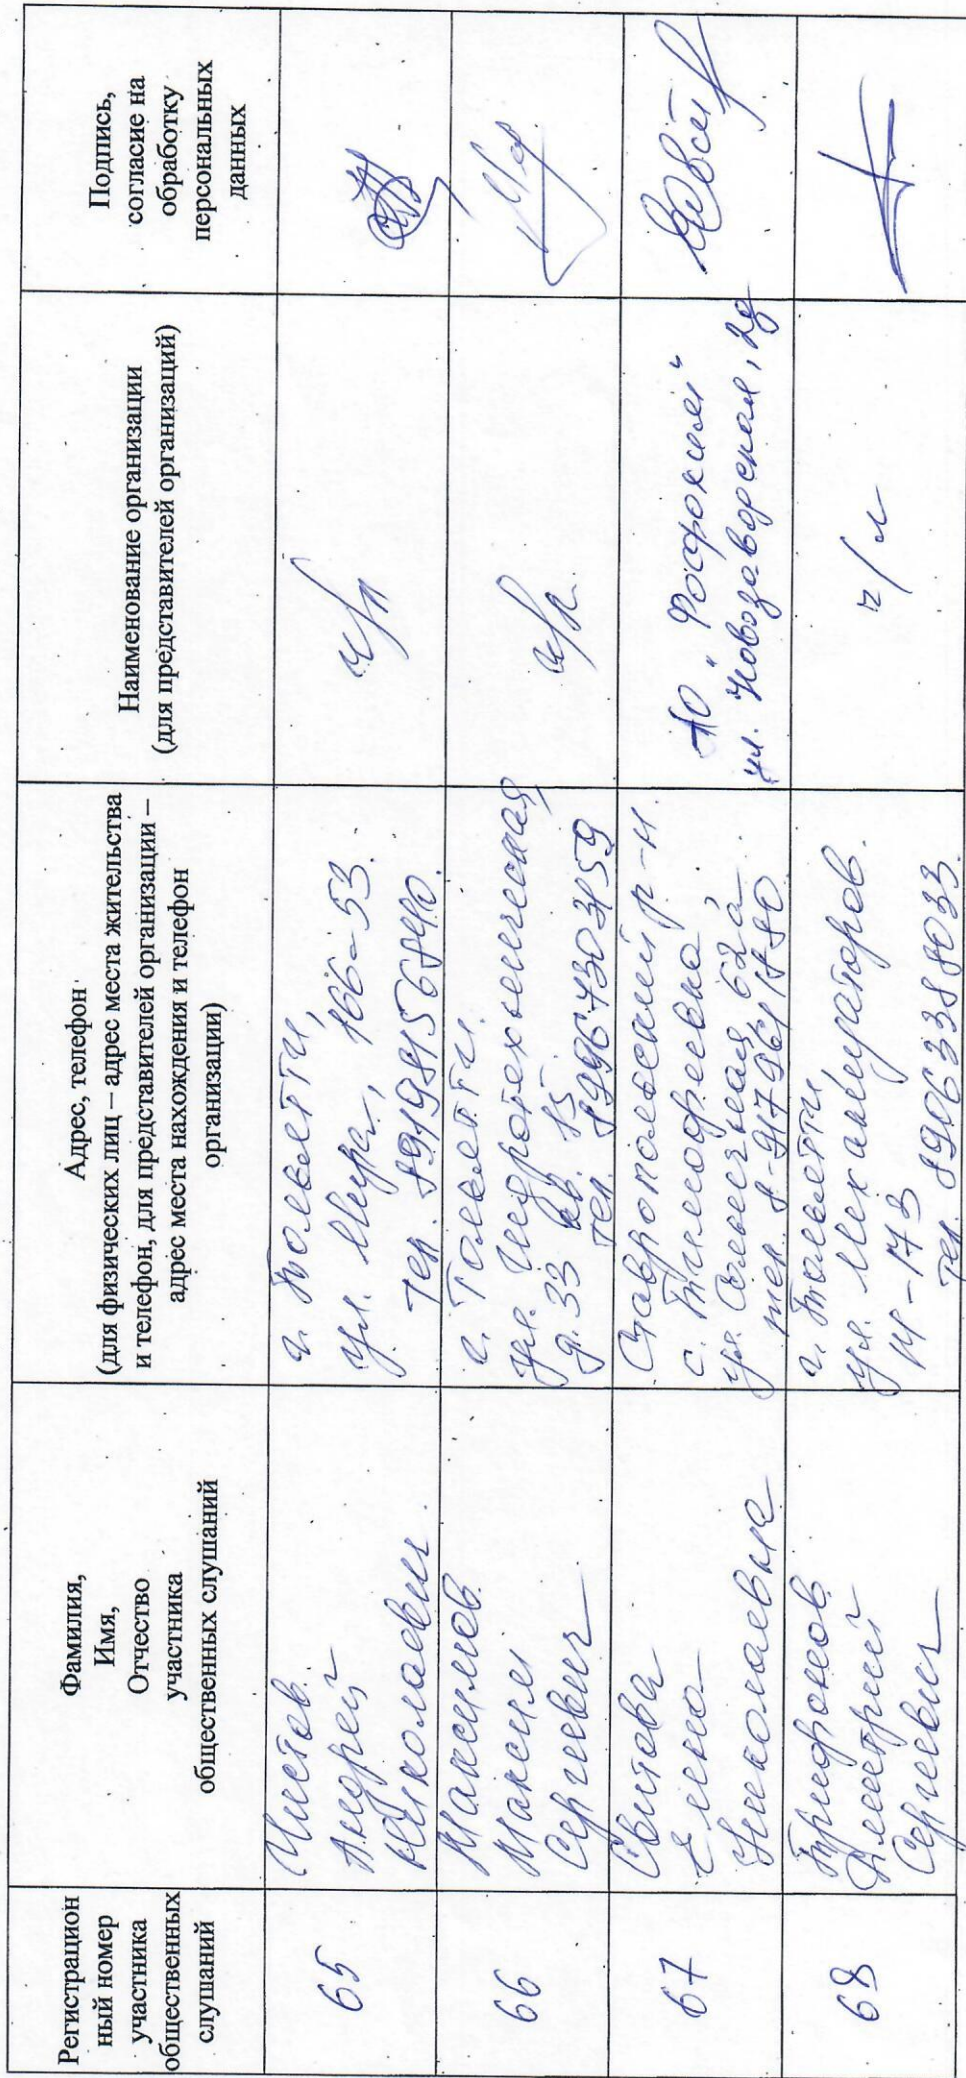 Регистрацион
ный номер
участника
общественных
слушаний
Фамилия,
Имя,
Отчество
участника
общественных слушаний
Адрес, телефон
(для физических лиц – адрес места жительства
и телефон, для представителей организации –
адрес места нахождения и телефон
организации)
Наименование организации
(для представителей организаций)
Подпись,
согласие на
обработку
персональных
данных
65
Чистов
Андрей
Николаевич
г. Тольятти,
ул. Мира, 166-53.
тел.
ч/л
66
Максимов
Максим
Сергеевич
г. Тольятти.
ул. Гидротехническая
д. 33 кв. 15
тел. 89967303159
ч/л.
67
Свитова
Елена
Николаевна
Ставропольский р-н.
с. Тимофеевка,
ул. Солнечная 62а
тел.
АО "Фосфохим"
ул. Новозаводская, 2д
68
Трифонов
Дмитрий
Сергеевич
г. Тольятти,
ул. Механизаторов.
14-173
тел. 89063388033
ч/л